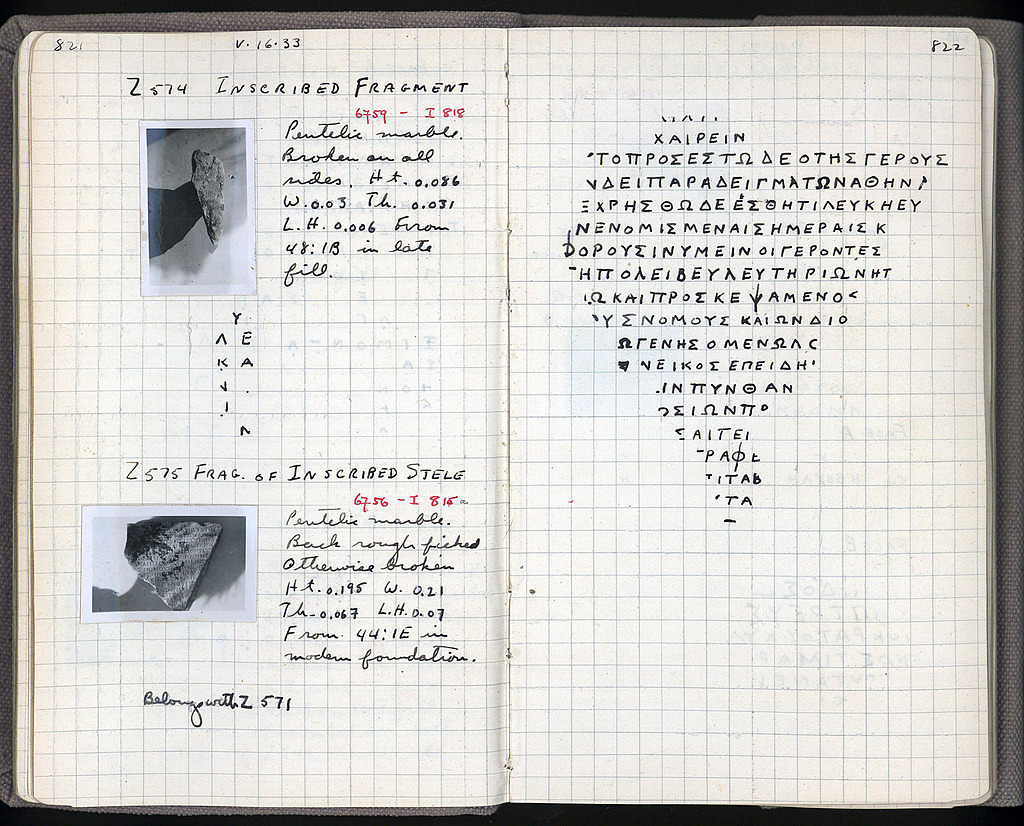 821
V.16.33
Z 574 INSCRIBED FRAGMENT
6759 – I 818
Pentelic marble.
Broken on all
sides. Ht. 0.086
W. 0.03 Th. 0.031
L.H. 0.006 From
48:IB in late
fill.
Υ
Λ Ε
Κ Α
Z 575 FRAG. OF INSCRIBED STELE
6756 – I 815
Pentelic marble.
Back rough picked
Otherwise broken
Ht. 0.195 W. 0.21
Th. 0.067 L.H. 0.07
From 44:IE in
modern foundation.
Belongs with Z 571
822
ΧΑΙΡΕΙΝ
ΤΟΠΡΟΣΕΣΤΩΔΕΟΤΗΣΓΕΡΟΥΣ
ΔΕΙΠΑΡΑΔΕΙΓΜΑΤΩΝΑΘΗΝ
ΞΧΡΗΣΘΩΔΕΕΣΘΗΤΙΛΕΥΚΗΕΥ
ΝΕΝΟΜΙΣΜΕΝΑΙΣΗΜΕΡΑΙΣΚ
ΦΟΡΟΥΣΙΝΥΜΕΙΝΟΙΓΕΡΟΝΤΕΣ
ΗΠΟΛΕΙΒΕΥΛΕΥΤΗΡΙΩΝΗΤ
ΙΩΚΑΙΠΡΟΣΚΕΨΑΜΕΝΟ
ΥΣΝΟΜΟΥΣΚΑΙΩΝΔΙΟ
ΩΓΕΝΗΣΟΜΕΝΩΛΣ
ΝΕΙΚΟΣΕΠΕΙΔΗ
ΙΝΠΥΝΘΑΝ
ΣΙΩΝΠΟ
ΣΑΙΤΕΙ
ΡΑΦΕ
ΙΤΑΒ
ΤΑ